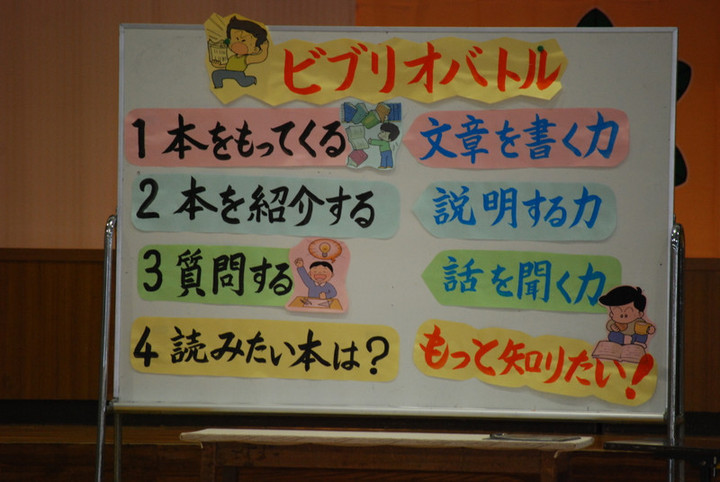 ビブリオバトル
1 本をもってくる
文章を書く力
2 本を紹介する
説明する力
3 質問する
話を聞く力
4 読みたい本は?
もっと知りたい!